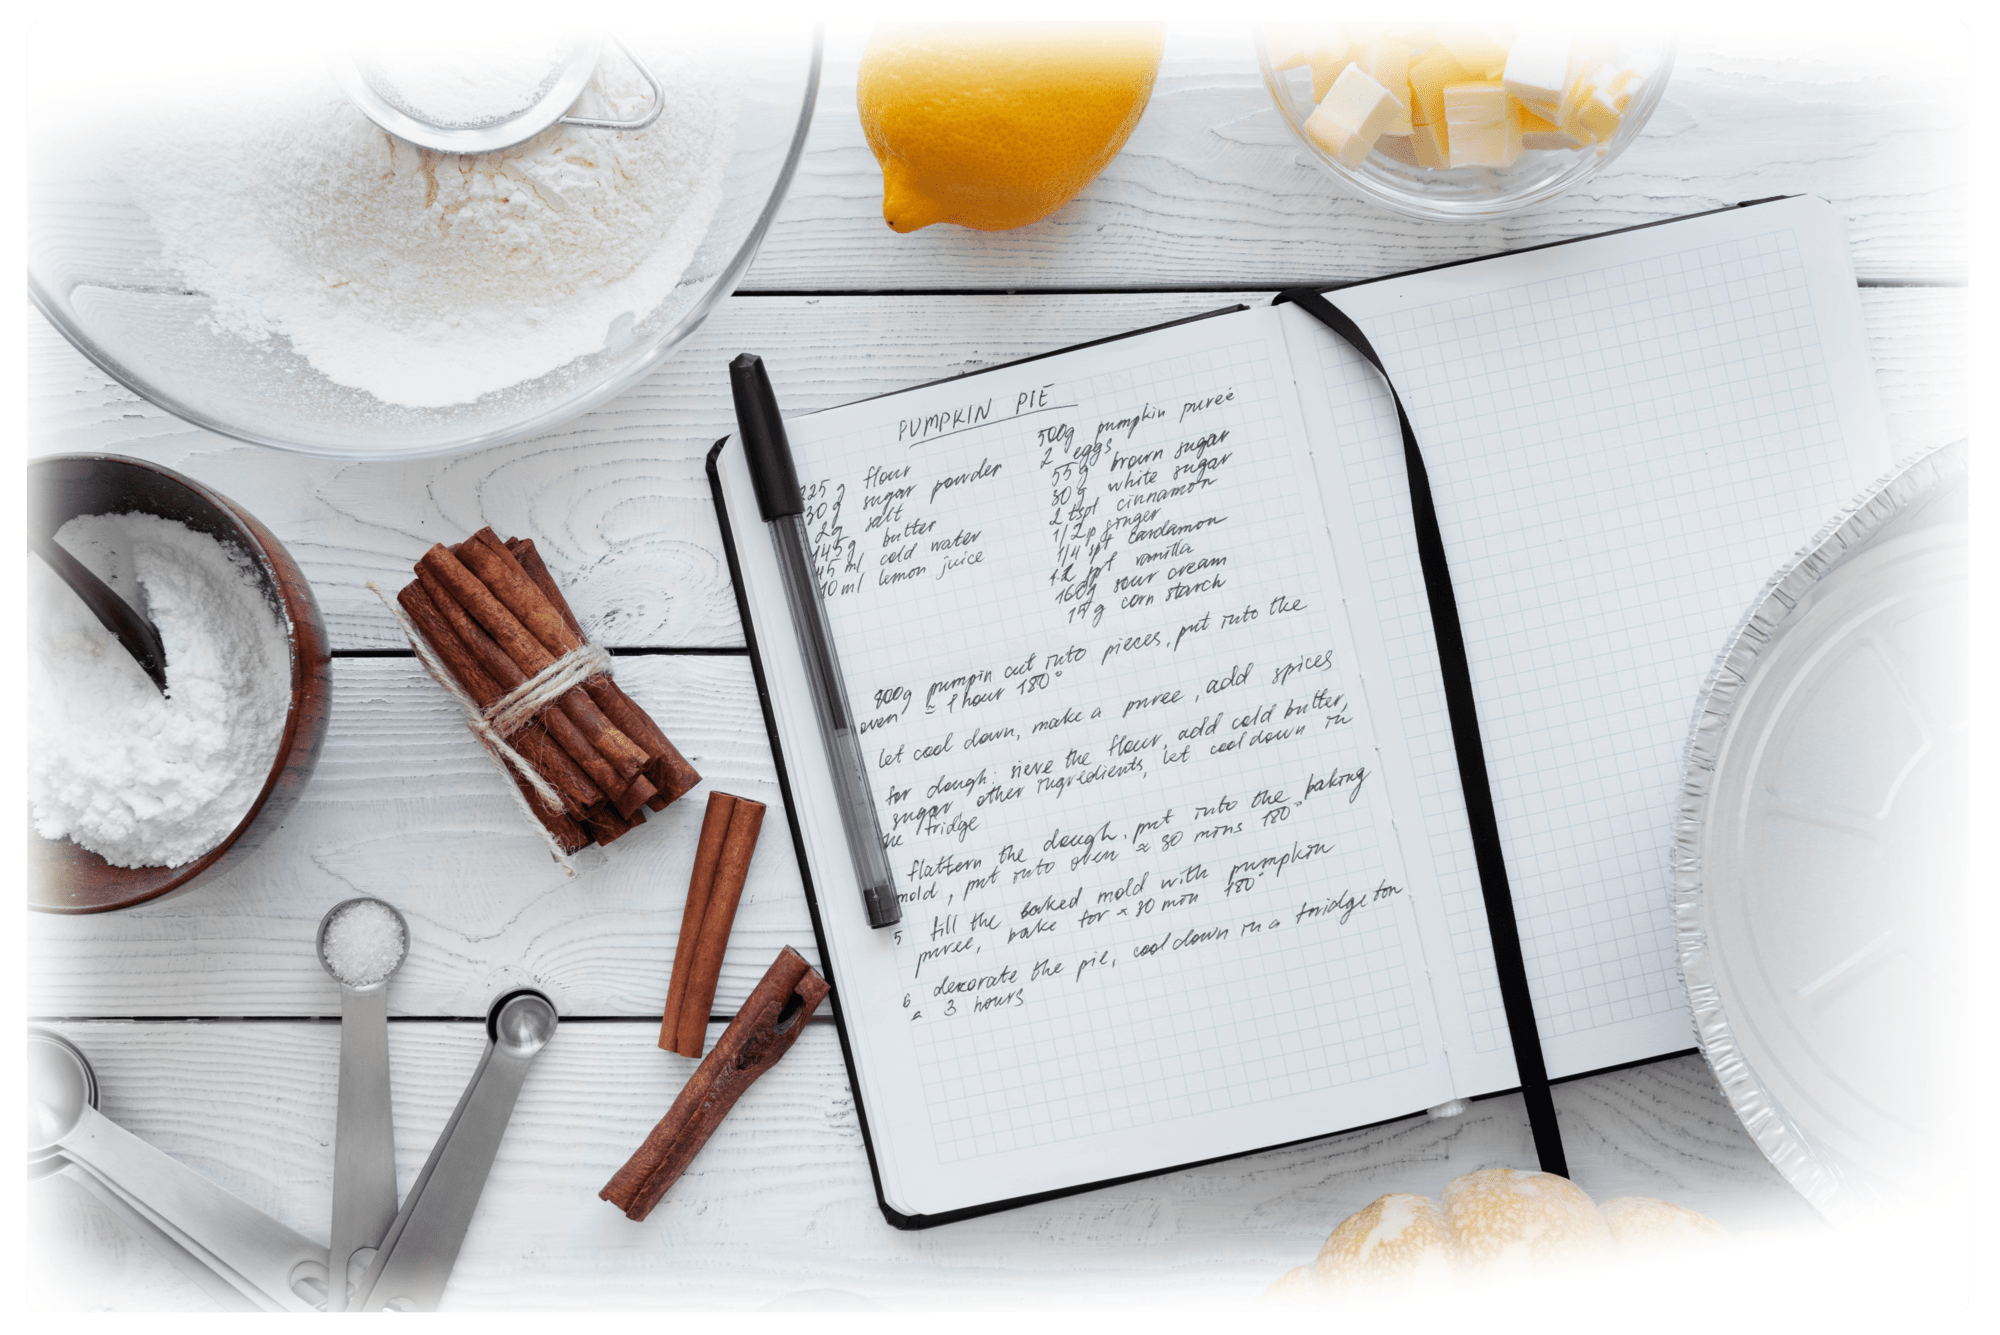 PUMPKIN PIE
225 g flour
30 g sugar powder
2g salt
145g butter
45 ml cold water
10 ml lemon juice
500g pumpkin pureé
2 eggs
55g brown sugar
30g white sugar
2 tspt cinnamon
1/2 p ginger
1/4 spt cardamon
spt vanilla
160g sour cream
15g corn starch
800g pumpin cut into pieces, put into the
oven ≈ 1 hour 180°
let cool down, make a puree, add spices
for dough: sieve the flour, add cold butter,
sugar other ingredients, let cool down in
the fridge
flattern the dough, put into the baking
mold, put into oven ≈ 30 mins 180°
5 fill the baked mold with pumpkin
puree, bake for ≈ 30 min 180°
6 decorate the pie, cool down in a fridge for
a 3 hours